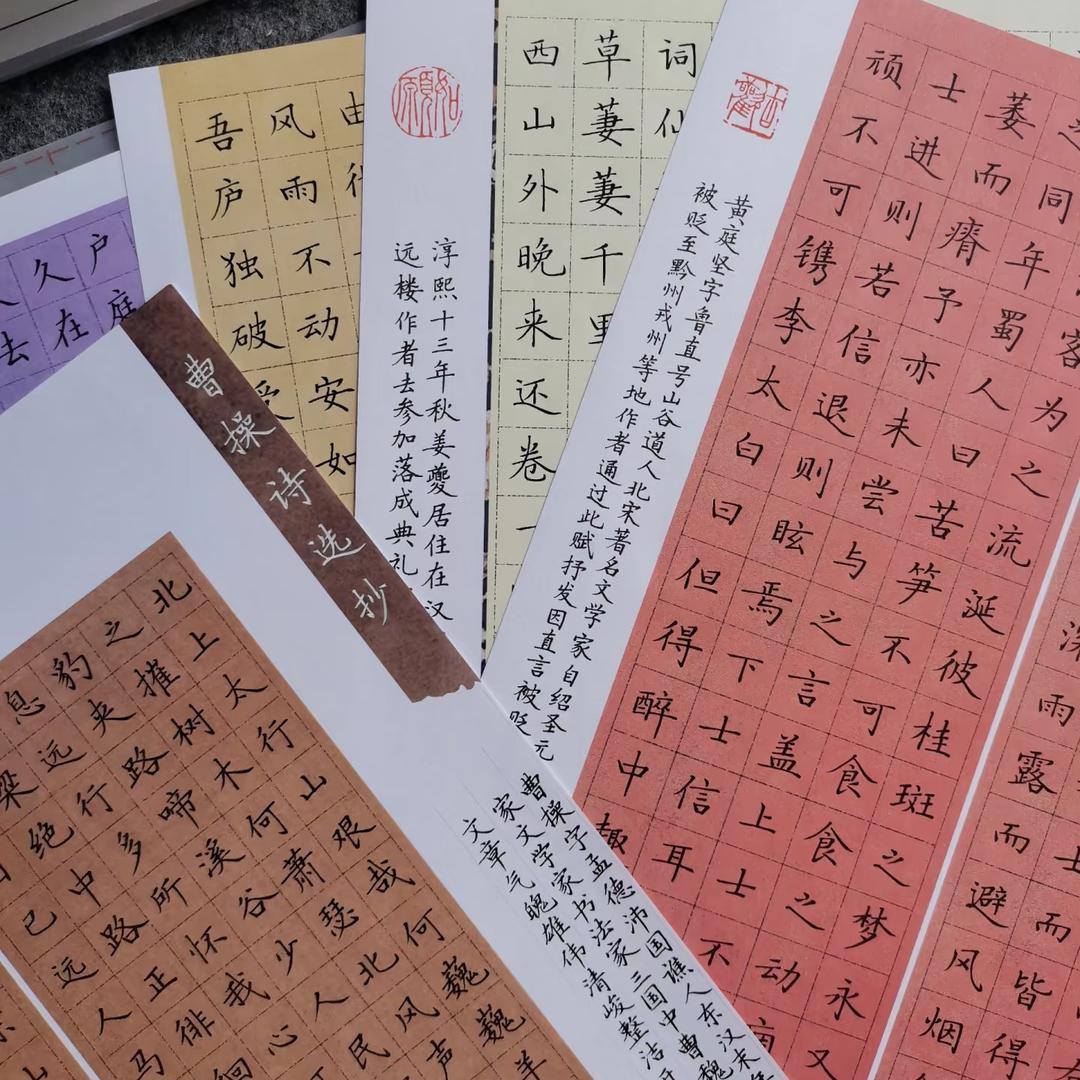 户庭
久在
去
由
风雨不动安如
吾庐独破受
如願
淳熙十三年秋姜夔居住在汉
远楼作者去参加落成典礼
词仙
草萋萋千里
西山外晚来还卷一
黄庭坚字鲁直号山谷道人北宋著名文学家自绍圣元
被贬至黔州戎州等地作者通过此赋抒发因直言被贬
士而皆得
深雨露而避风烟
客为之流涎彼桂斑之梦永又
同年蜀人曰苦笋不可食食之动
萎而瘠予亦未尝与之言盖上士不
士进则若信退则眩焉下士信耳不
顽不可镌李太白曰但得醉中趣
曹操诗选抄
曹操字孟德沛国谯人东汉末年
家文学家书法家三国中曹魏
文章气魄雄伟清峻整洁开
北上太行山艰哉何巍巍羊
之摧树木何萧瑟北风声
豹夹路啼溪谷少人民
息远行多所怀我心
梁绝中路正徘徊
已远人马